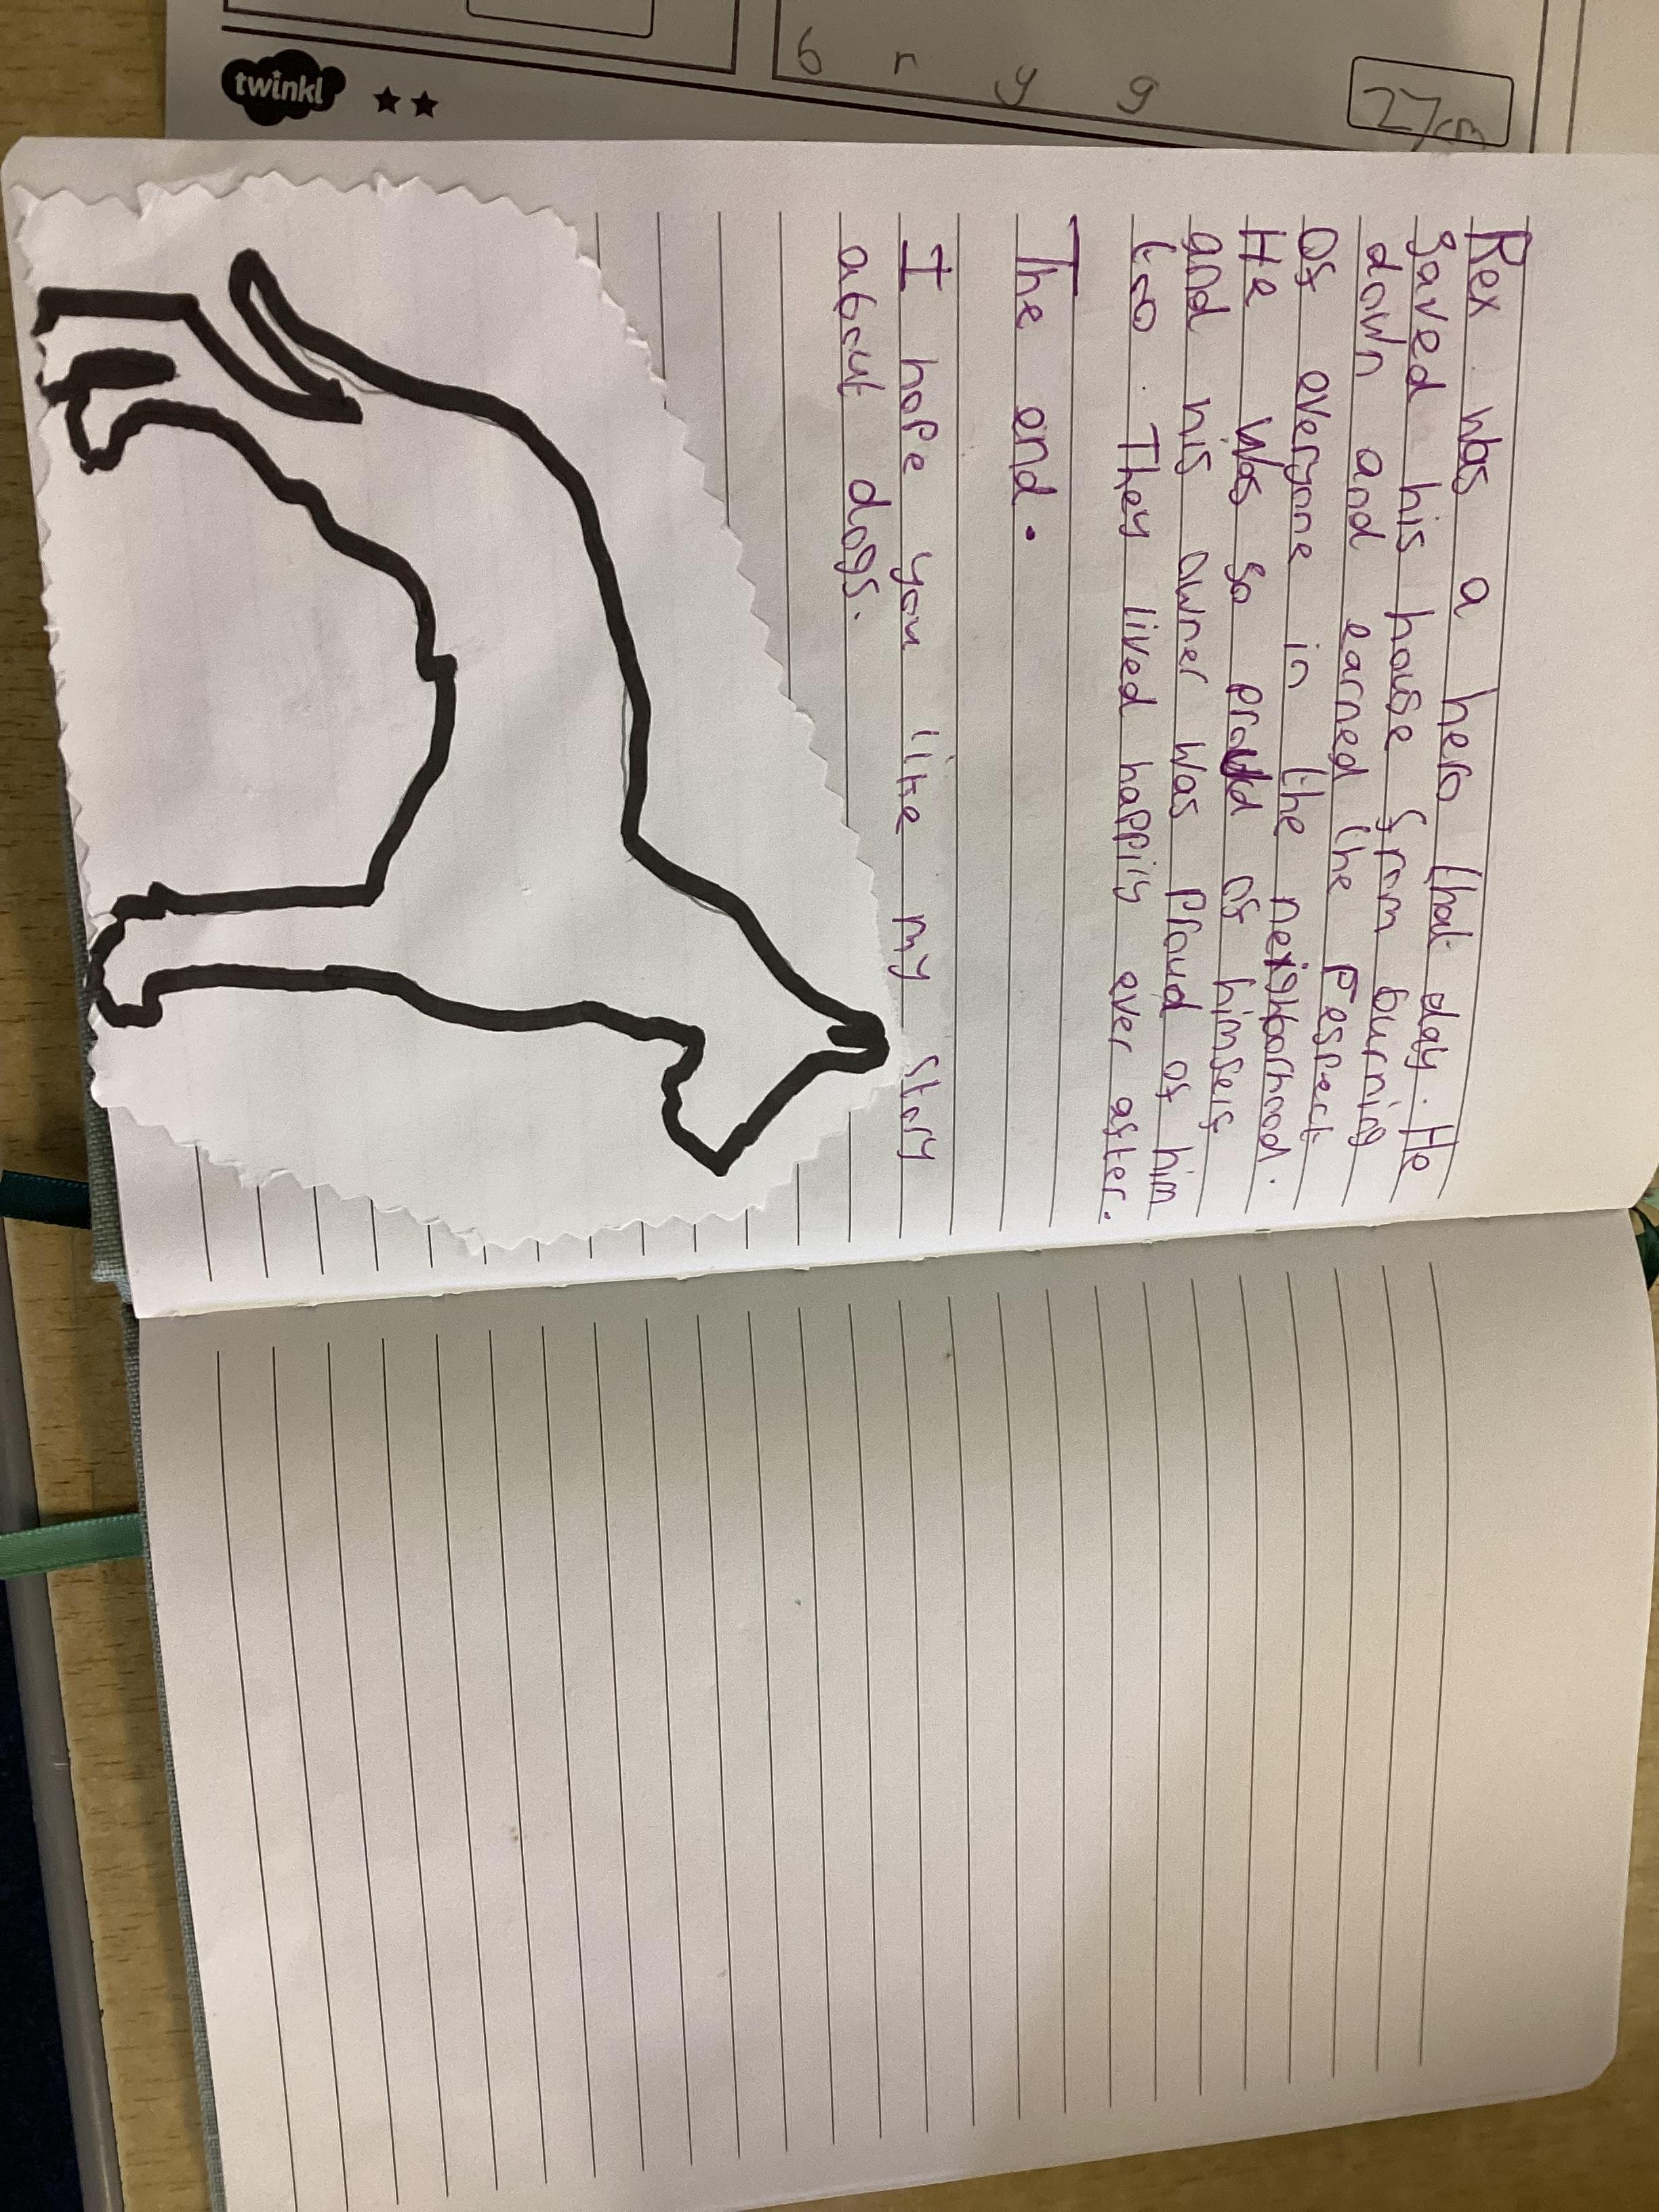 Rex was a hero that day. He
saved his house from burning
down and earned the respect
of everyone in the neighborhood.
He was so proud of himself
and his owner was proud of him
too. They lived happily ever after.
The end.
I hope you like my story
about dogs.
twinkl
b r y g
27cm